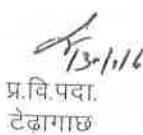 13/1/16
प्र.वि.पदा.
टेढ़ागाछ